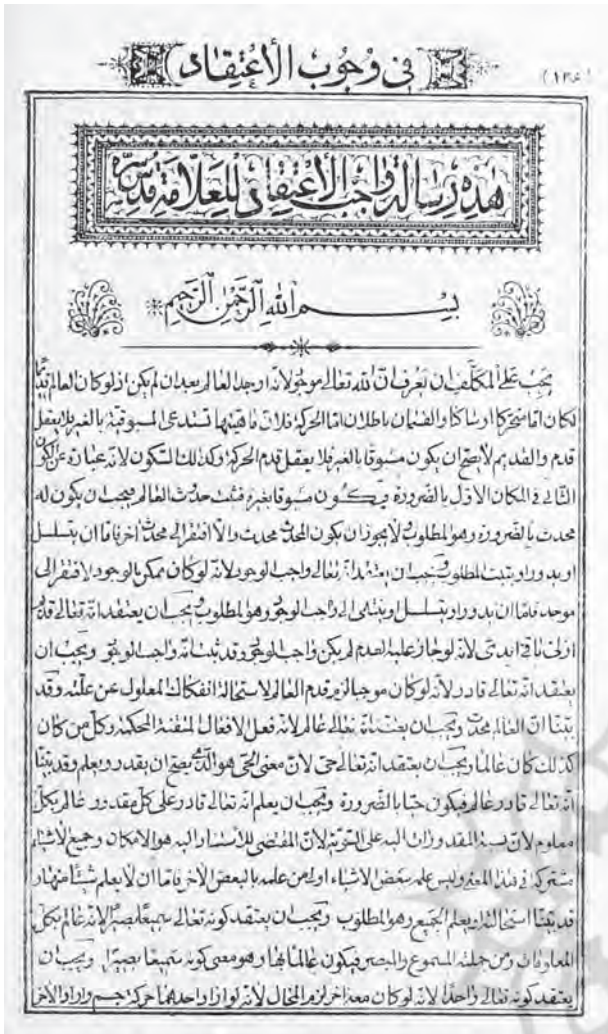 في وجوب الاعتقاد
(١٣٨)
هذه رسالة واجب الاعتقاد للعلامة قدس سره
بسم الله الرحمن الرحيم
يجب على المكلف ان يعرف ان الله تعالى موجود لانه اوجد العالم بعد ان لم يكن اذ لو كان العالم قديما
لكان اما متحركا او ساكنا والقسمان باطلان اما الحركة فلان ماهيتها تستدعى المسبوقية بالغير فلا يعقل
قدم والقديم لا يصح ان يكون مسبوقا بالغير فلا يعقل قدم الحركة وكذلك السكون لانه عبارة عن الكون
الثانى فى المكان الاول بالضرورة فيكون مسبوقا بغيره فثبت حدث العالم فيجب ان يكون له
محدث بالضرورة وهو المطلوب ولا يجوز ان يكون المحدث محدث والا افتقر الى محدث اخر فاما ان يتسلسل
او يدور او يثبت المطلوب ويجب ان يعتقد انه تعالى واجب الوجود لانه لو كان ممكن الوجود لافتقر الى
موجد فاما ان يدور او يتسلسل او ينتهى الى واجب الوجود وهو المطلوب ويجب ان يعتقد انه تعالى قديم
ازلى باقى ابدى لانه لو جاز عليه العدم لم يكن واجب الوجود وقد ثبت انه واجب الوجود ويجب ان
يعتقد انه تعالى قادر لانه لو كان موجبا لزم قدم العالم لاستحالة انفكاك المعلول عن علته وقد
بينا ان العالم محدث ويجب ان يعتقد انه تعالى عالم لانه فعل الافعال المتقنة المحكمة وكل من كان
كذلك كان عالما ويجب ان يعتقد انه تعالى حى لان معنى الحى هو الذى يصح ان يقدر ويعلم وقد بينا
انه تعالى قادر عالم فيكون حيا بالضرورة ويجب ان يعلم انه تعالى قادر على كل مقدور عالم بكل
معلوم لان نسبة المقدورات اليه على السوية لان المقتضى للاستناد اليه هو الامكان وجميع الاشياء
مشتركة فى هذا المعنى وليس علمه ببعض الاشياء اولى من علمه بالبعض الاخر فاما ان لا يعلم شيئا منها و
قد بينا استحالته او يعلم الجميع وهو المطلوب ويجب ان يعتقد كونه تعالى سميعا بصيرا لانه عالم بكل
المعلومات ومن جملتها المسموع والمبصر فيكون عالما بها وهو معنى كونه سميعا بصيرا ويجب ان
يعتقد كونه تعالى واحدا لانه لو كان معه اخر لزم المحال لانه لو اراد احدهما حركة جسم واراد الاخر